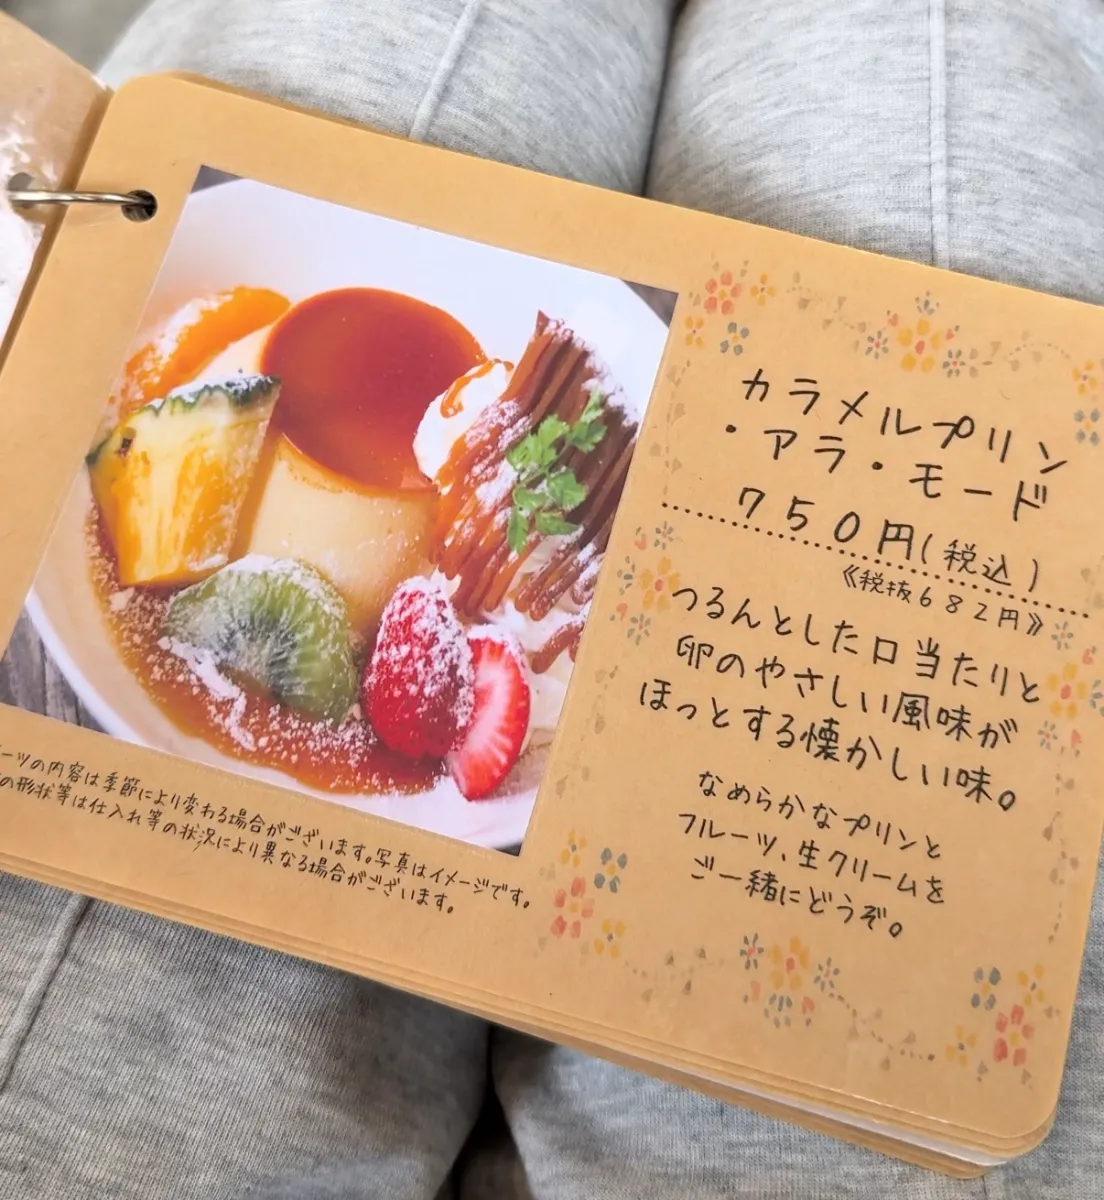 カラメルプリン
・アラ・モード
750円(税込)
《税抜682円》
つるんとした口当たりと
卵のやさしい風味が
ほっとする懐かしい味。
なめらかなプリンと
フルーツ、生クリームを
ご一緒にどうぞ。
ーツの内容は季節により変わる場合がございます。写真はイメージです。
の形状等は仕入れ等の状況により異なる場合がございます。